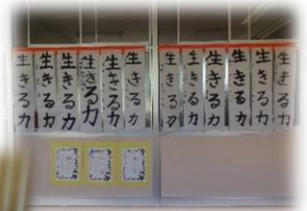 生きる力
生きる力
生きる力
生きる力
生きる力
生きる力
生きる力
生きる力
生きる力
生きる力
生きる力
生きる力